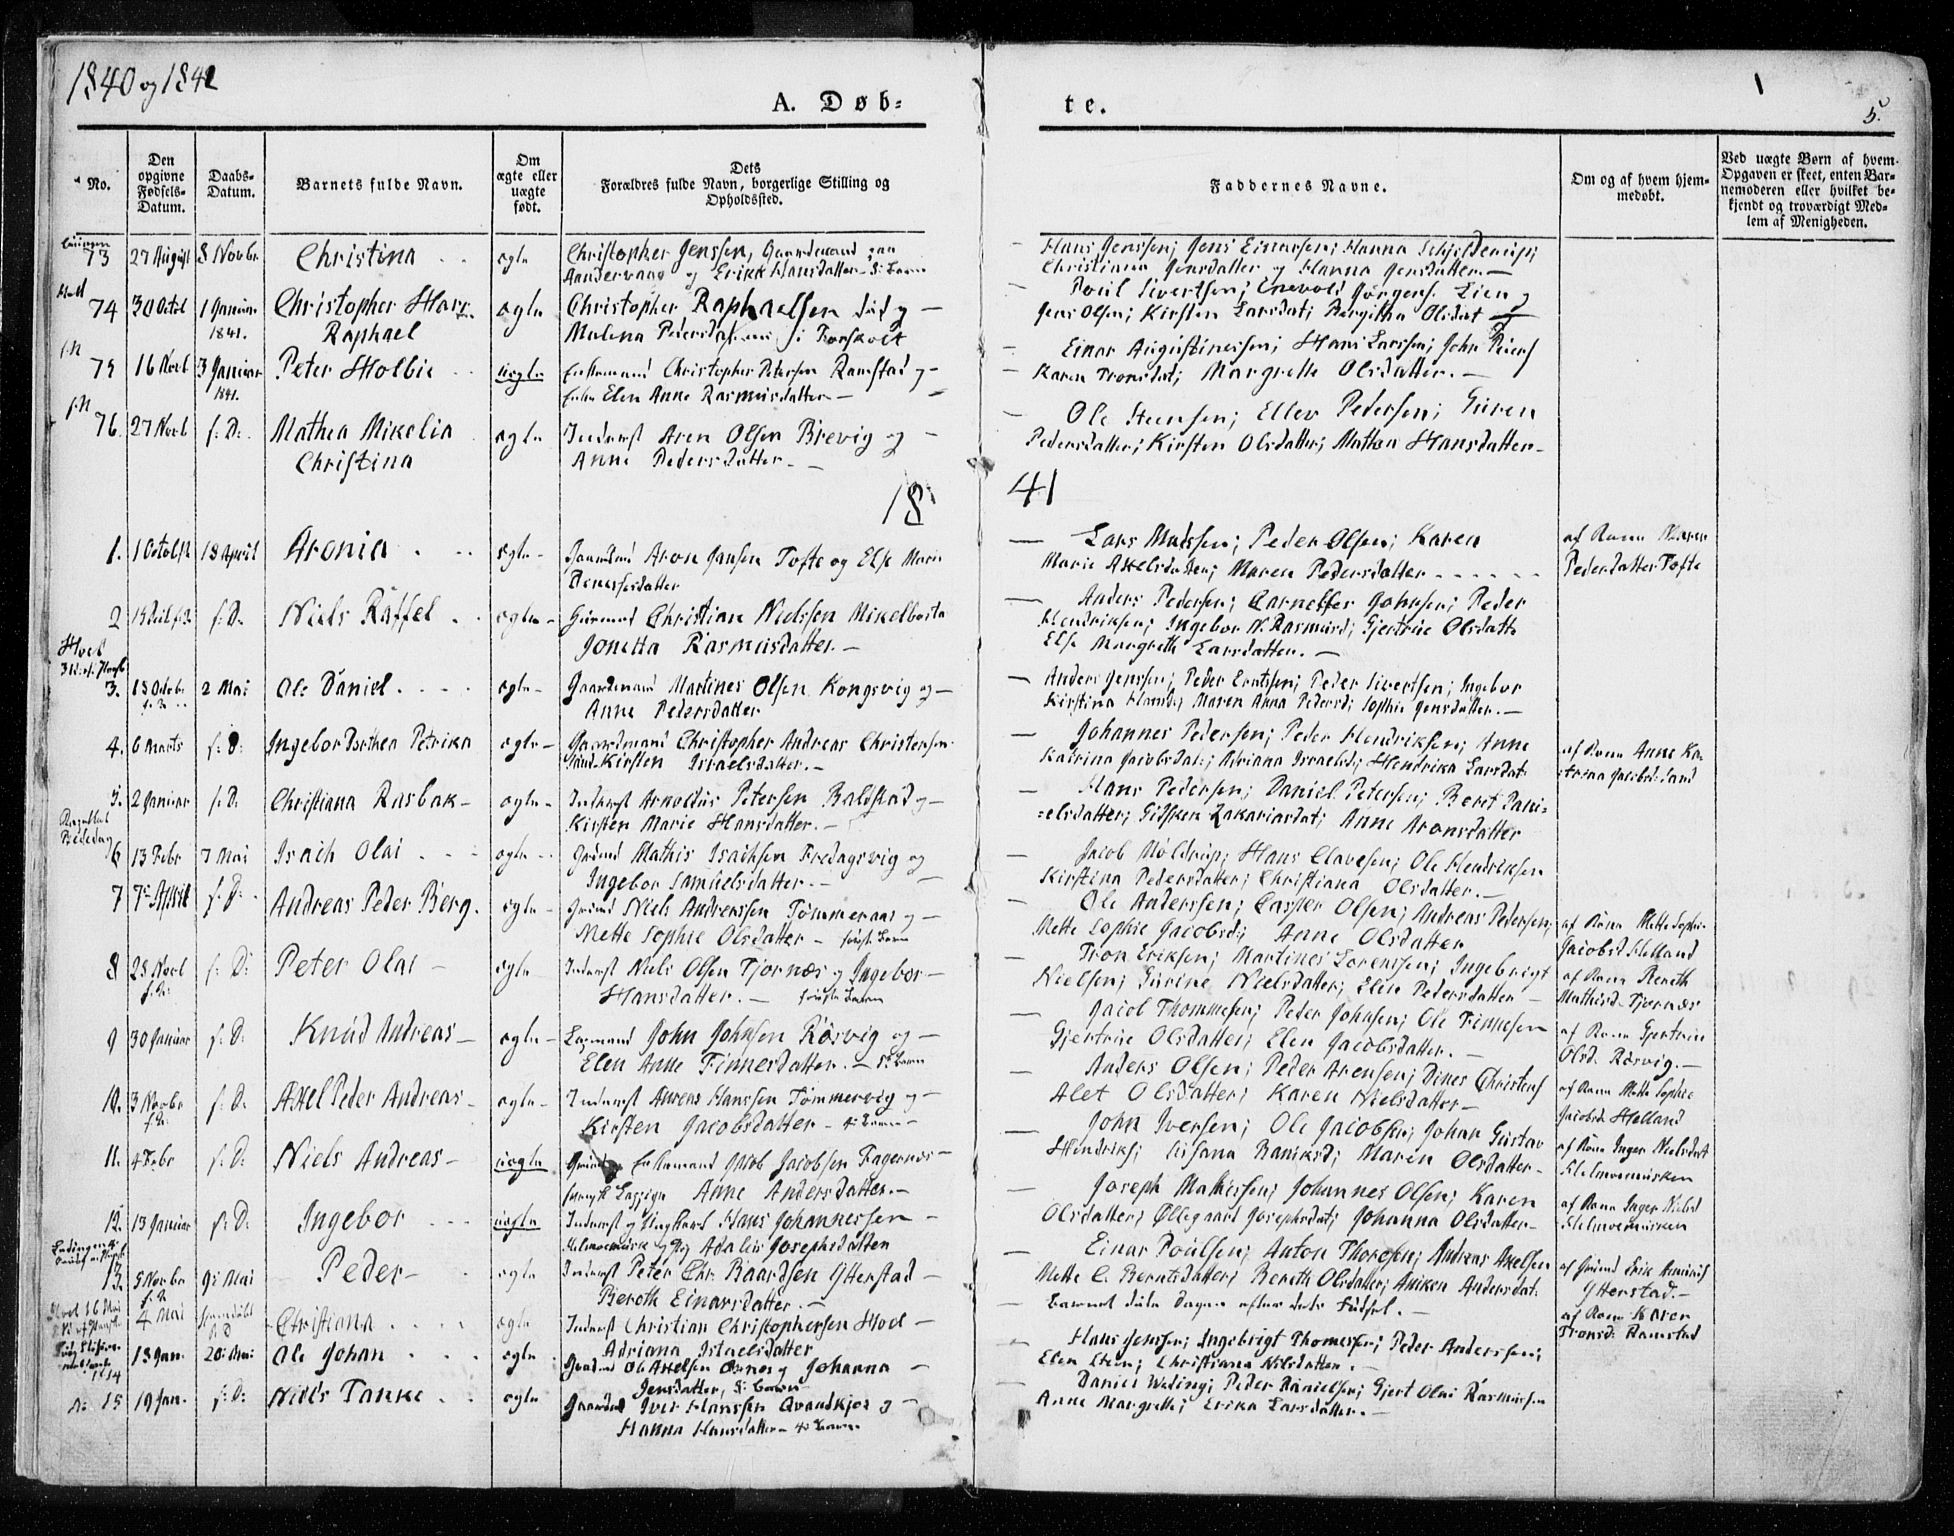 1840 og 1841
A. Døb-
te.
5.
No.
Den opgivne Fødsels-Datum.
Daabs-Datum.
Barnets fulde Navn.
Om ægte eller uægte født.
Dets Forældres fulde Navn, borgerlige Stilling og Opholdssted.
Faddernes Navne.
Om og af hvem hjem-medøbt.
Ved uægte Børn af hvem Opgaven er skeet, enten Bar-nemoderen eller hvilket be-kjendt og troværdigt Med-lem af Menigheden.
73 27 August 8 Novbr Christina ægte Christopher Jenssen, Gaardmand paa
og Erikk Hansdatter
Hans Jenssen; Jens Einarsen; Hanna Schjelderup;
Christianna Jensdatter og Hanna Jensdatter.
74 30 Octbr 1 Januar 1841. Christopher
Raphael ægte Christopher Raphaelsen
Malena Pedersdatter
Poul Sivertsen; Enevold Jørgens. Lien
Jens Olsen; Kirsten Larsdat; Bergitha Olsdat
75 16 Novb 3 Januar 1841. Peter Holbie uægte Enkemand Christopher Petersen Ramstad og
Enke Elen Anne Rasmusdatter
Einar Augustinussen; Hans Larssen; John Peders
Karen Tronsdat; Margrette Olsdatter.
76. 27 Novb s: D: Mathea Mikelia
Christina ægte Inderst Aren Olsen Brevig og
Anne Pedersdatter
Ole Steensen; Ellev Pedersen; Guren
Pedersdatter; Kirsten Olsdatter; Mathea Hansdatter
18 41
1. 1 Octob 18 April Aronia ægte Gaardmd Aron Jansen Tofte og Else Marie
Lars Madssen; Peder Olsen; Karen
Marie Axelsdatter; Maren Pedersdatter
af Konen Maren
Pedersdatter Tofte
2 s: D. Niels Raffel ægte Christian Nielssen Mikelbostad
Jonetta Rasmusdatter.
Anders Pedersen; Carnelser Johnsen; Peder
Hendriksen; Ingebor N. Rasmusd; Gjertrue Olsdatt
Else Margreth Larsdatter.
3. 2 Mai Ole Daniel ægte Gaardmand Martines Olsen Kongsvig og
Anne Pedersdatter
Anders Jenssen; Peder Erntssen; Peder Sivertsen; Ingebor
Kirstina Hansd; Maren Anna Pedersd; Sophie Jensdatter.
4. 6 Marts s: D: Ingebor Dorthea Petrika ægte Gaardmand Christopher Andreas Christensen
Sand Kirsten Israelsdatter.
Johannes Pedersen; Peder Hendriksen; Anne
Katrina Jacobsdat; Adriana Israelsd; Hendrika Larsdat.
af Konen Anne Ka-
trina Jacobsd: Sand
5. 2 Januar s: D: Christiana Rasbak ægte Inderst Arnoldus Petersen Balsstad og
Kirsten Marie Hansdatter.
Hans Pedersen; Daniel Petersen; Beret Dani-
elsdatter; Gidsken Zakariasdat; Anne Aronsdatter
6 13 Febr 7 Mai Isach Olai ægte Mathis Isachsen Fredagsvig og
Ingebor Samuelsdatter.
Jacob Moldrup; Hans Clavesen; Ole Hendriksen
Kirstina Pedersdatter; Christiana Olsdatter.
7 7de April s: D Andreas Peder Berg. ægte Niels Andreassen Tømmeraas og
Mette Sophie Olsdatter
Ole Anderssen; Casper Olsen; Andreas Pedersen;
Mette Sophie Jacobsd; Anne Olsdatter
af Konen Mette Sophie
Jacobsd Helland
8 25 Novb s: D: Peter Olai ægte Inderst Niels Olsen Tjornæs og Ingebor
Hansdatter.
Tron Eriksen; Martines Sorenssen; Ingebrigt
Nielsen; Gurine Nielsdatter; Elen Pedersdatter
af Konen Bereth
Mathisd. Tjernæs
9 30 Januar s: D: Knud Andreas ægte John Johnsen Rørvig og
Elen Anne Finnesdatter.
Jacob Thommesen; Peder Johnsen; Ole Finnesen
Gjertrue Olsdatter; Elen Jacobsdatter.
af Konen Gjertrue
Olsd. Rørvig.
10. 3 Novbr s: D: Axel Peder Andreas ægte Inderst Anders Hanssen Tømmervig og
Kirsten Jacobsdatter
Anders Olsen; Peder Arensen; Dines Christens
Alet Olsdatter; Karen Nielsdatter
af Konen Mette Sophie
Jacobsd Helland
11. 4 Febr s: D: Niels Andreas uægte Enkemand Jacob Jacobsen Fagernæs
Anne Andersdatter.
John Iversen; Ole Jacobsen; Johan Gustav
Hendriks; Maren Olsdatter
af Konen Inger Nielsdatt
12. 13 Januar s: D: Ingebor uægte Inderst og Ungkarl Hans Johannessen
og Pig Adalus Josephsdatter
Joseph Mathissen; Johannes Olsen; Karen
Olsdatter; Øllegaard Josephsdat; Johanna Olsdatter
af Konen Inger Nielsd
13. 5 Novbr 9de Mai Peder ægte Inderst Peter Chr. Baardsen Ytterstad
Bereth Einarsdatter.
Einar Poulsen; Anton Thoresen; Andreas Axelsen
Mette C. Berntsdatter; Bereth Olsdatter; Aniken Andersdat.
Ytterstad.
4 Mai Christiana ægte Inderst Christian Christophersen Hoel
Adriana Israelsdatter
Barnet døde Dagen efter dets Fødsel.
af Konen Karen
Tronsd. Ramstad
14 13 Jan. 20 Mai Ole Johan ægte Ole Axelsen og Johanna
Jensdatter,
Hans Jenssen; Ingebrigt Thomessen; Peder Anderssen;
Elen Steen; Christiana Nilsdatter.
15 19 Jan. s: D: Niels Tanke ægte Iver Hanssen Qvandkjos og
Hanna Hansdatter
Daniel Weding; Peder Danielsen; Gjert Olai Rasmussen
Anne Margrethe; Erika Larsdatter.